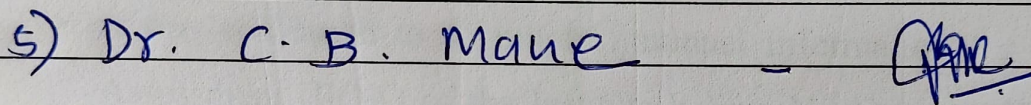 5) Dr. C. B. Mane -